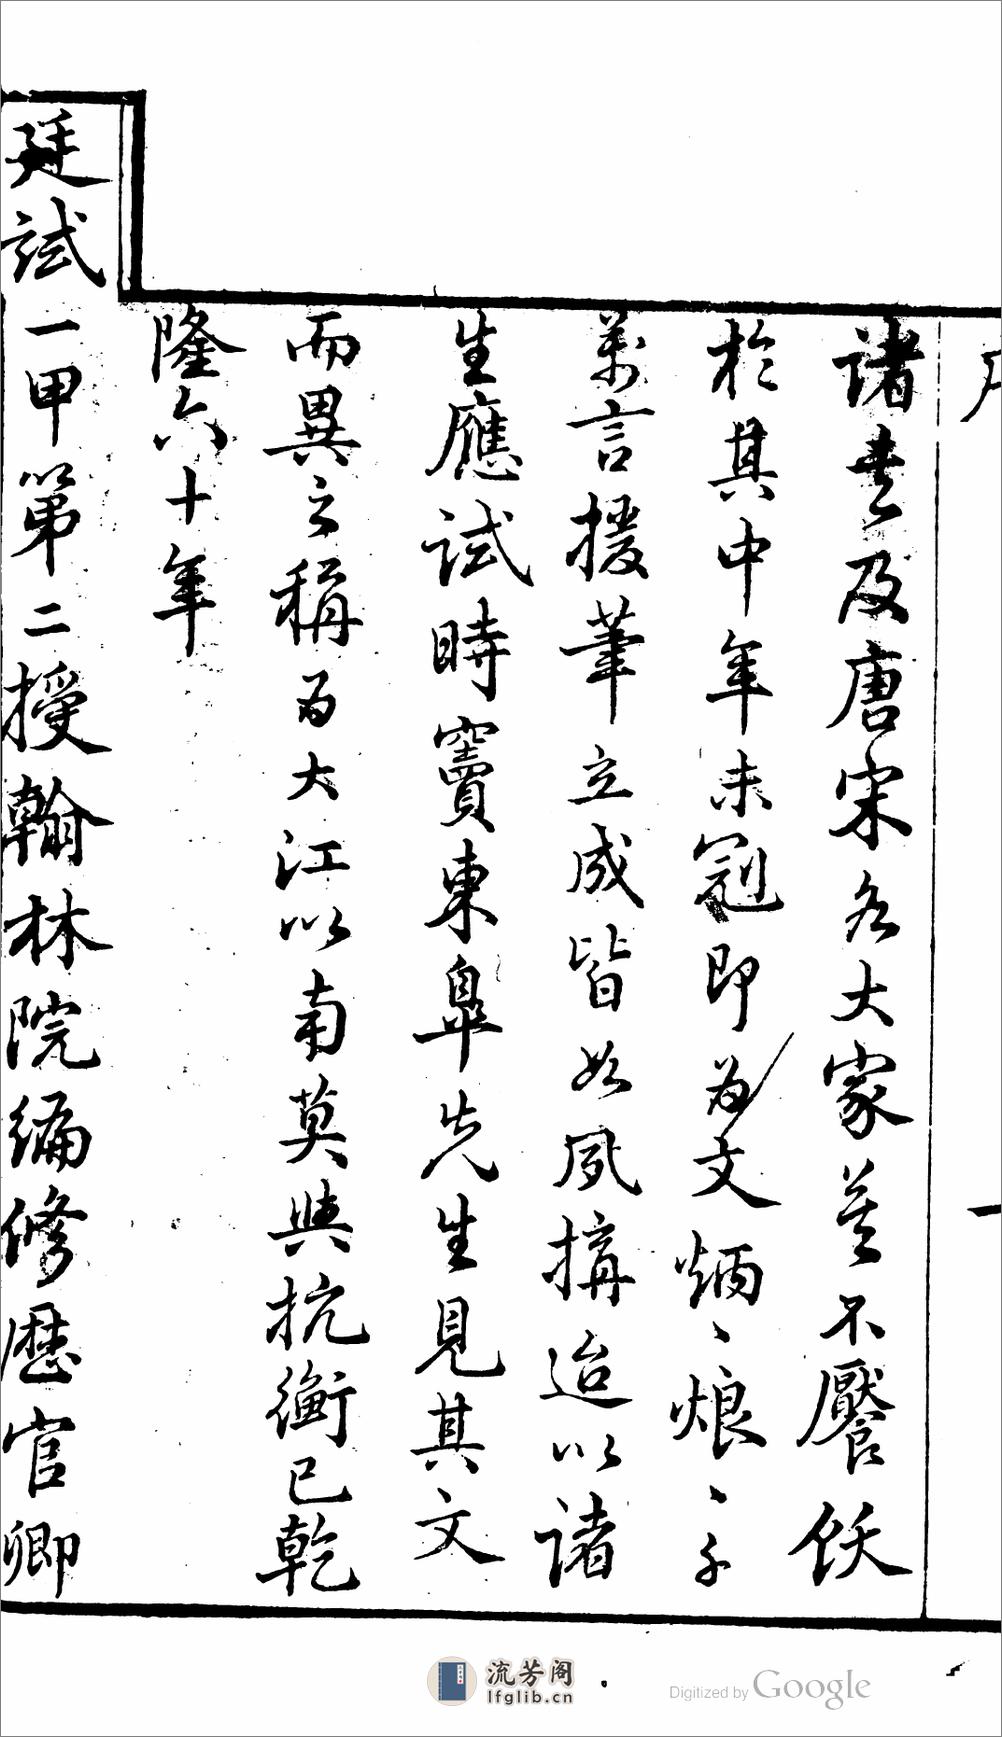 諸史及唐宋各大家莫不饜飫
於其中年未冠即為文炳、烺、千
萬言援筆立成皆如夙搆迨以諸
生應試時竇東皋先生見其文
而異之稱為大江以南莫與抗衡已乾
隆六十年
廷試一甲第二授翰林院編修歷官卿
流芳阁
lfglib.cn
Digitized by Google